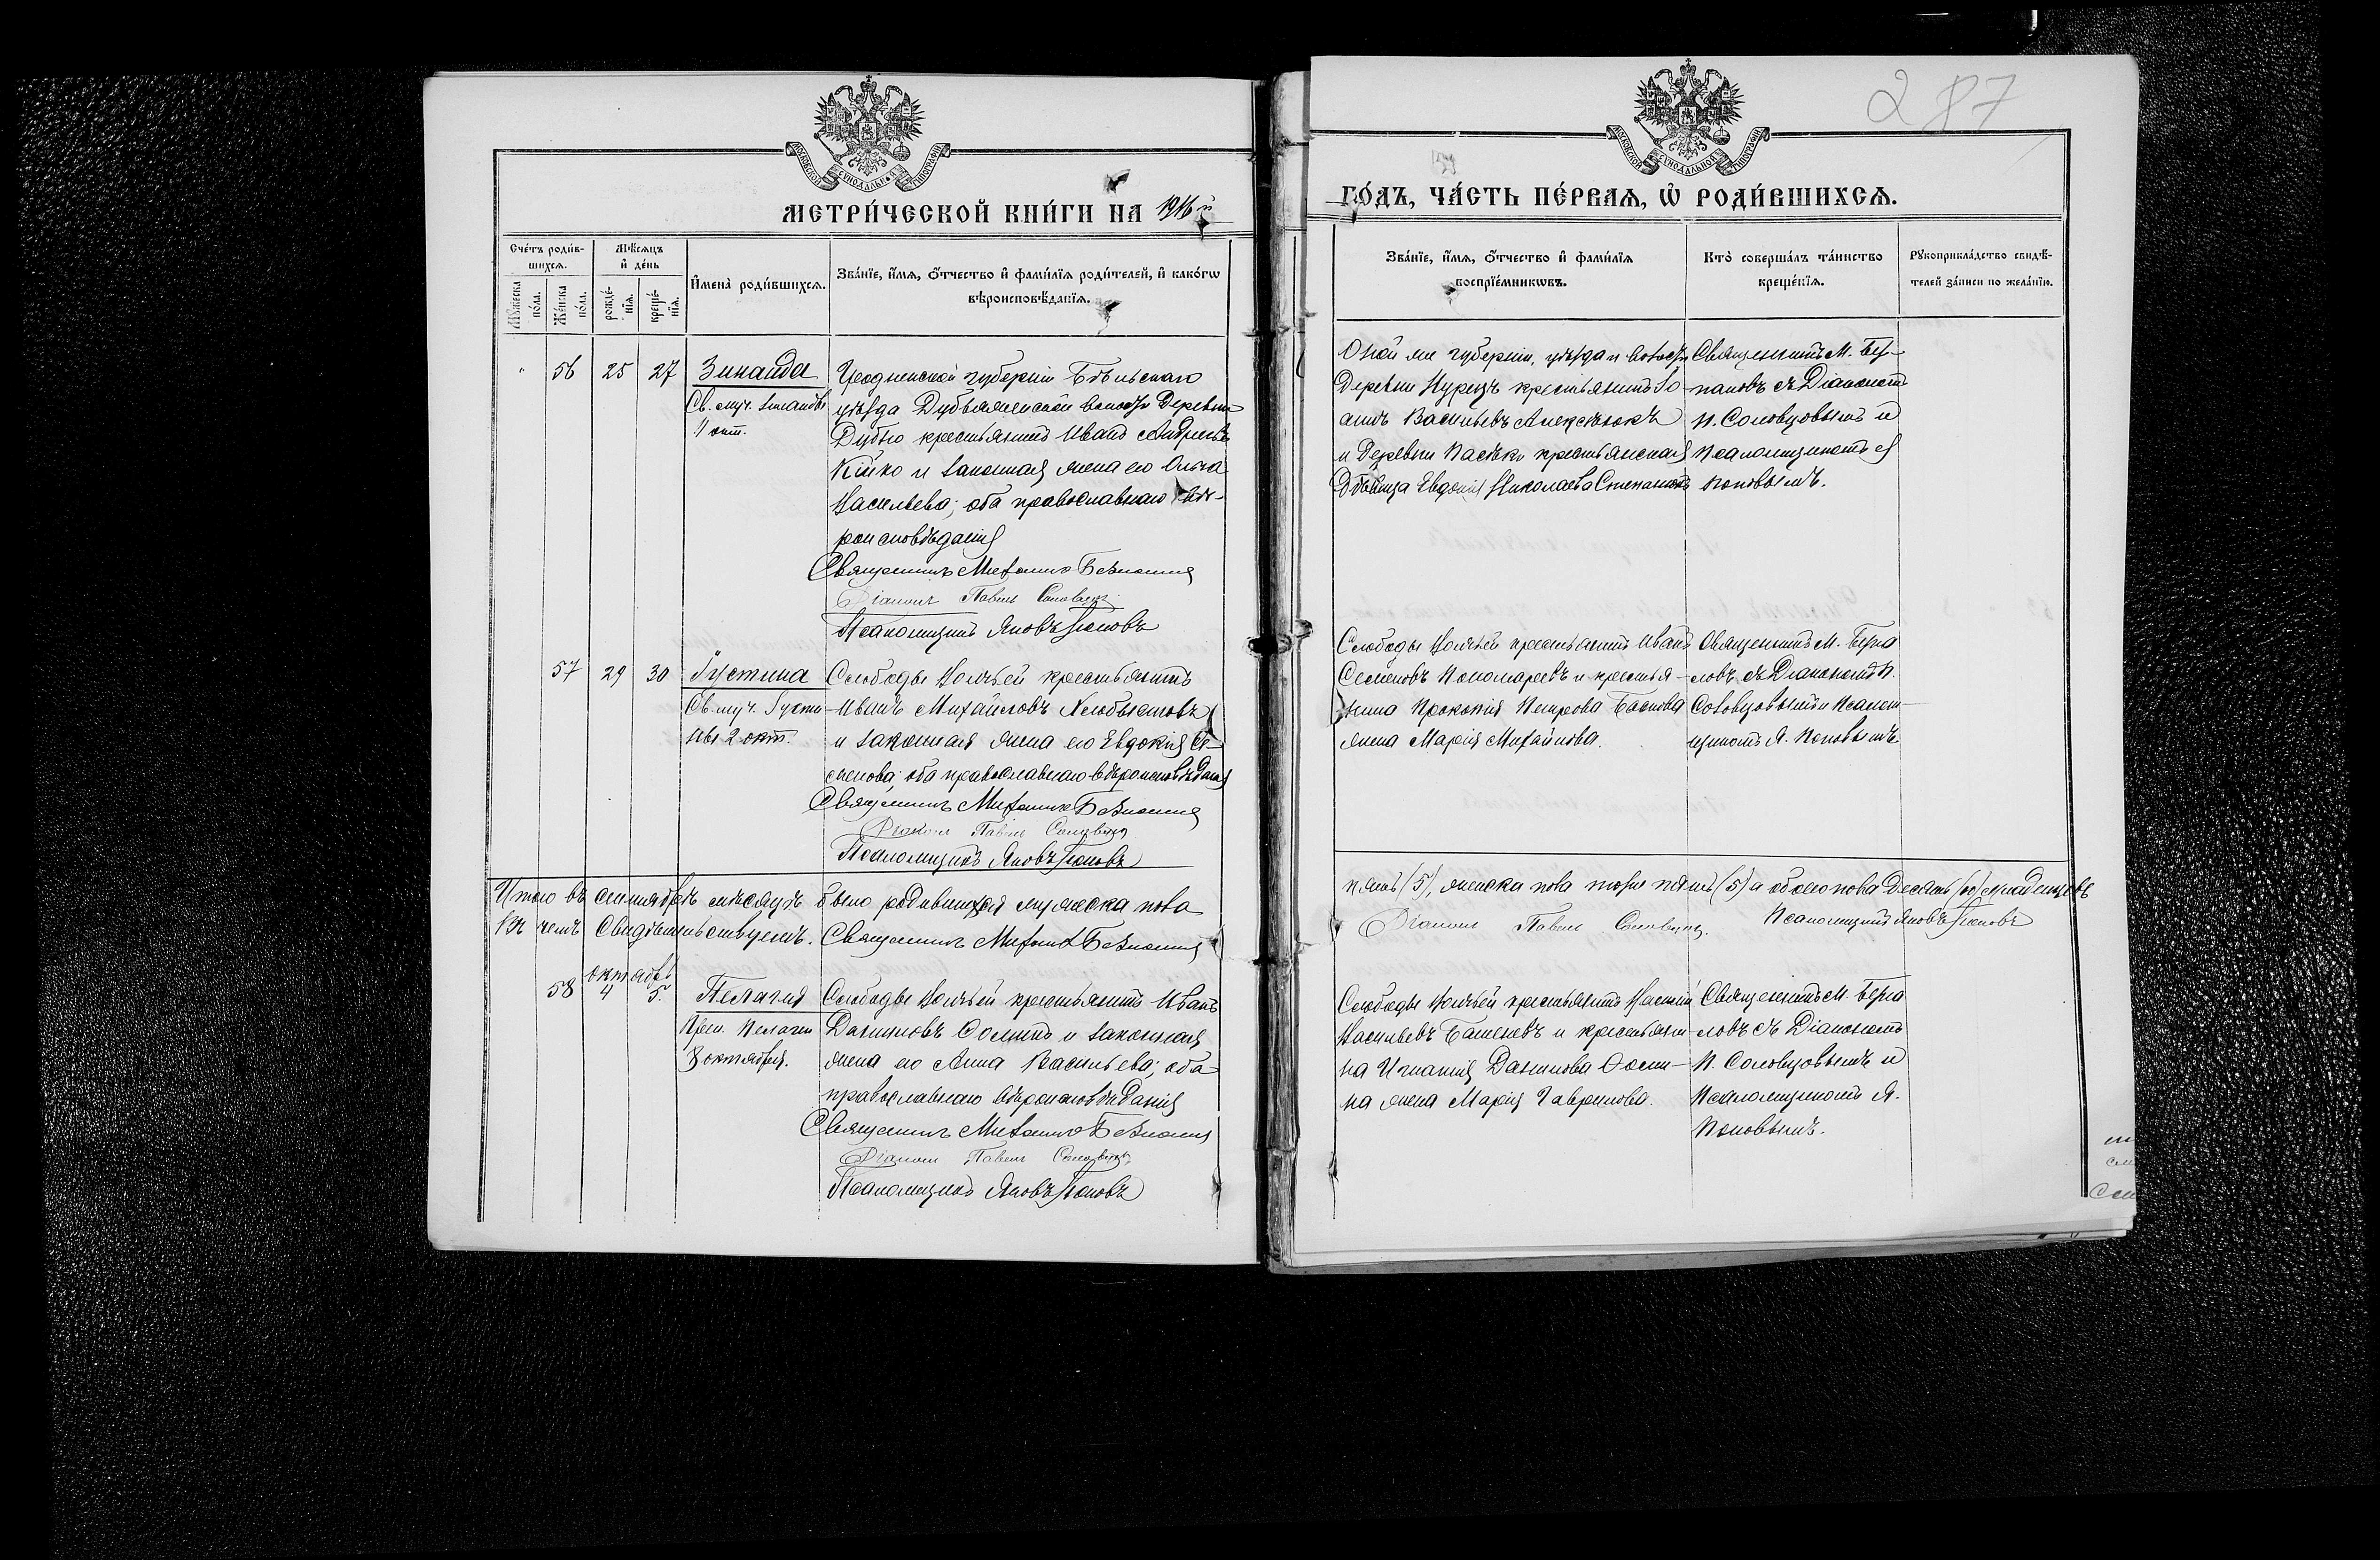 287
МОСКОВСКОЙ СѴНОДАЛЬНОЙ ТИПОГРАФІИ
МЕТРИ́ЧЕСКОЙ КНИ́ГИ НА 1916 й
Сче́тъ роди́в-
шихсѧ.
Мꙋ́жеска по́ла.
Же́нска по́ла.
Мѣ́сѧцъ
и҆ де́нь
рожде́-
нїѧ.
креще́-
нїѧ.
И҆мена̀ роди́вшихсѧ.
Зва́нїе, и҆́мѧ, ѻ҆́тчество и҆ фами́лїѧ роди́телей, и҆ како́гѡ
вѣроисповѣ́данїѧ.
56 25 27 Зинаида
Св. муч. Зинаиды
11 окт.
Гродненской губерніи Бѣльскаго
уѣзда Дубяжинской волости деревни
Дубно крестьянинъ Иванъ Андреевъ
и законная жена его Ольга
Васильева; оба православнаго вѣ-
роисповѣданія
Священникъ Михаилъ
Діаконъ Павелъ Соловцовъ
Псаломщикъ Яковъ Поповъ
57 29 30 Іустина
Св. муч. Іусти-
ны 2 окт.
Слободы Волчьей крестьянинъ
Иванъ Михайловъ
и законная жена его Евдокія Се-
менова; оба православнаго вѣроисповѣданія
Священникъ Михаилъ
Діаконъ Павелъ Соловцовъ
Псаломщикъ Яковъ Поповъ
Итого въ сентябрѣ мѣсяцѣ было родившихся мужеска пола
Въ чемъ свидѣтельствуемъ. Священникъ Михаилъ
октябрь
58 4 5. Пелагія
Преп. Пелагіи
8 октября.
Слободы Волчьей крестьянинъ Иванъ
Даниловъ и законная
жена его Анна Васильева; оба
православнаго вѣроисповѣданія
Священникъ Михаилъ
Діаконъ Павелъ Соловцовъ
Псаломщикъ Яковъ Поповъ
МОСКОВСКОЙ СѴНОДАЛЬНОЙ ТИПОГРАФІИ
ГО́ДЪ, ЧА́СТЬ ПЕ́РВАѦ, Ѡ҆ РОДИ́ВШИХСѦ.
Зва́нїе, и҆́мѧ, ѻ҆́тчество и҆ фами́лїѧ
воспрїе́мникѡвъ.
Кто̀ соверша́лъ та́инство
креще́нїѧ.
Рꙋкоприкла́дство свидѣ́-
телей за́писи по жела́нїю.
Оной же губерніи, уѣзда и волости
деревни Нурецъ крестьянинъ Іо-
аннъ Васильевъ Алексѣюкъ
и деревни крестьянская
дѣвица Евдокія Николаева
Священникъ М.
съ Діакономъ
П. Соловцовымъ и
Псаломщикомъ Я.
Поповымъ.
Слободы Волчьей крестьянинъ Иванъ
Семеновъ Пономаревъ и крестья-
нина Прокопія Петрова
жена Марія Михайлова.
Священникъ М.
съ Діакономъ П.
Соловцовымъ и Псалом-
щикомъ Я. Поповымъ
пять (5), женска пола тоже пять (5) а обоего пола десять (10) младенцевъ
Діаконъ Павелъ Соловцовъ. Псаломщикъ Яковъ Поповъ
Слободы Волчьей крестьянинъ
Васильевъ и крестьяни-
на Игнатія Данилова
жена Марія Гаврилова.
Священникъ М.
съ Діакономъ
П. Соловцовымъ и
Псаломщикомъ Я.
Поповымъ.